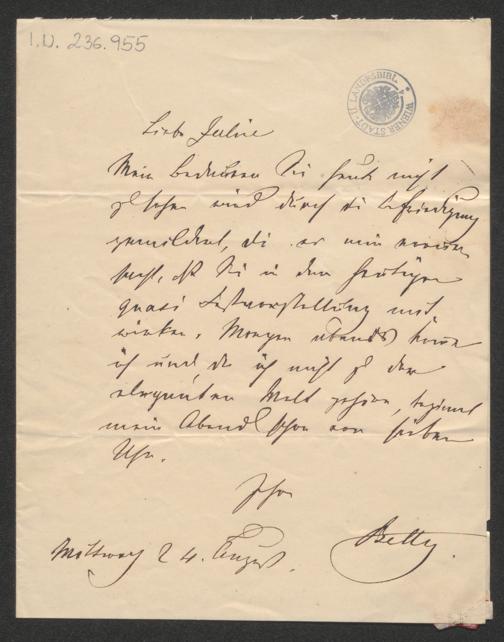 I.N. 236.955
WIENER STADT- U. LANDESBIBL.
Liebe Julie
Mein Bedauern Sie heute nicht
zu sehen wird durch die Befriedigung
gemildert, die es mir
macht, daß Sie in der heutigen
quasi Festvorstellung mit
wirken. Morgen abends komme
ich und da ich nicht zu der
eleganten Welt gehöre, beginnt
mein Abend schon um sieben
Uhr.
Ihre
Betty.
Mittwoch 24. August.